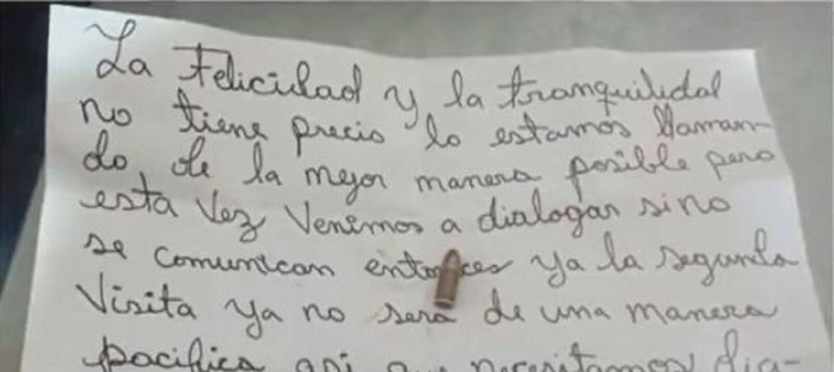 La Felicidad y la tranquilidad
no tiene precio lo estamos llaman-
do de la mejor manera posible pero
esta vez venimos a dialogar sino
se comunican entonces ya la segunda
Visita ya no sera de una manera
pacifica asi que necesitamos dia-